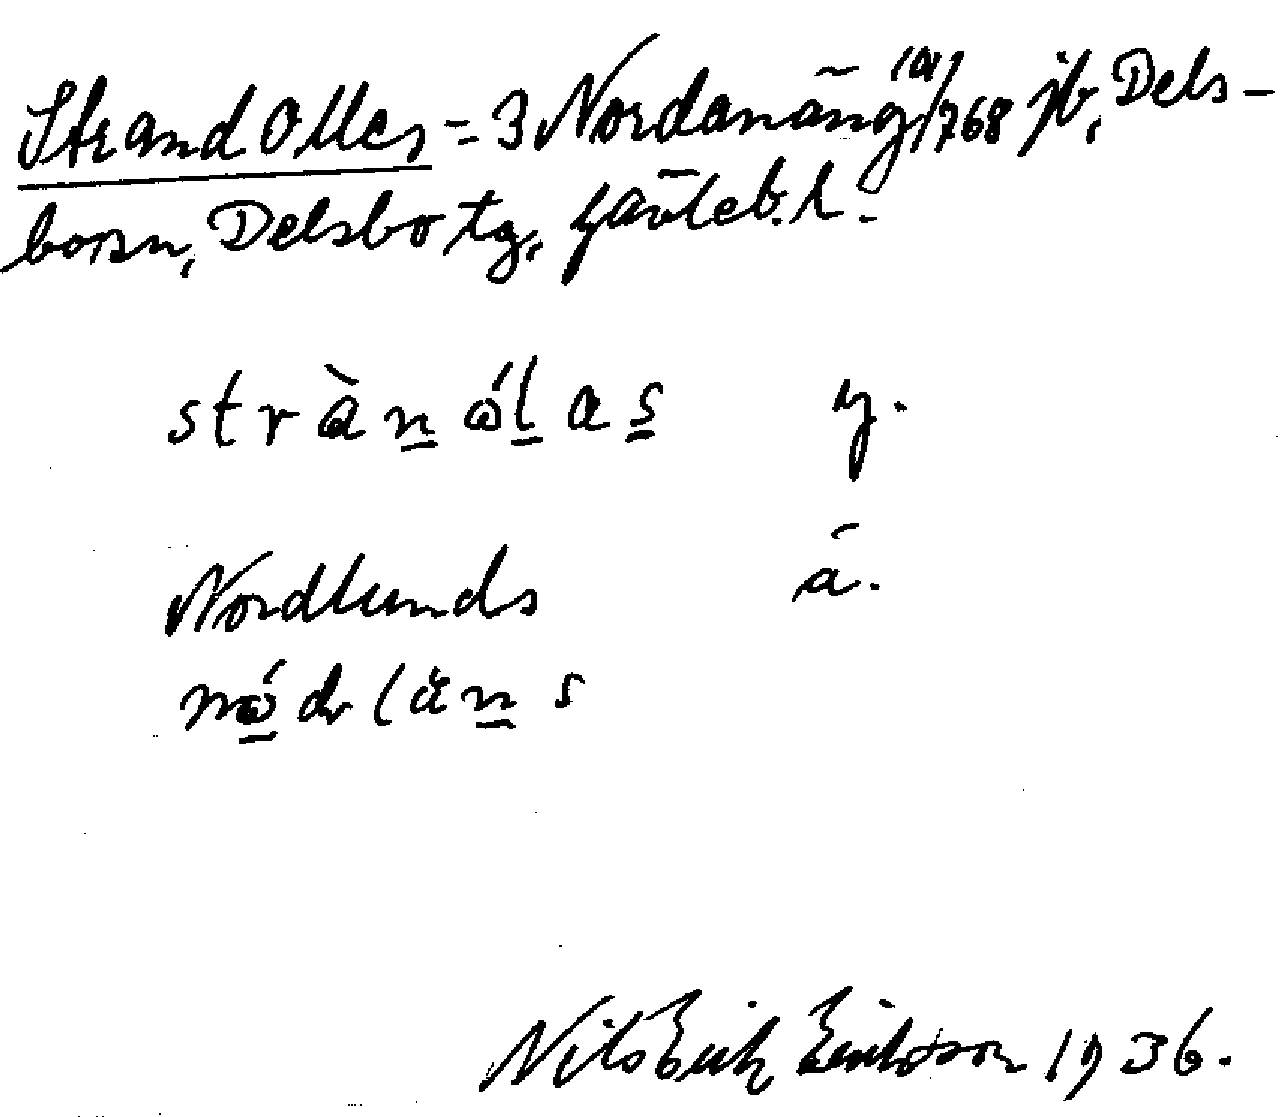 Strand Olles = 3 Nordanäng (a)/1768 jb, Dels-
borsn, Delsbo tg, Gävleb. l.
stràn ól as y.
Nordlunds ä.
nó dr läns
Nils Erik Eriksson 1936.